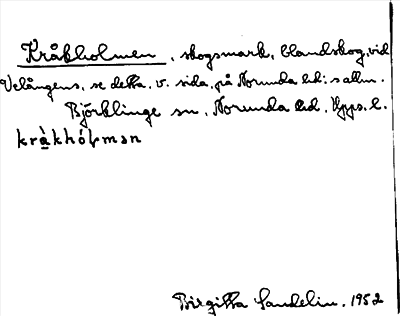 Kråkholmen, skogsmark, blandskog, vid
Velångens, se detta, v. sida, på Norunda hd:s allm.
Björklinge sn, Norunda hd, Upps. l.
kràkhól̥mən
Birgitta Sandelin. 1952